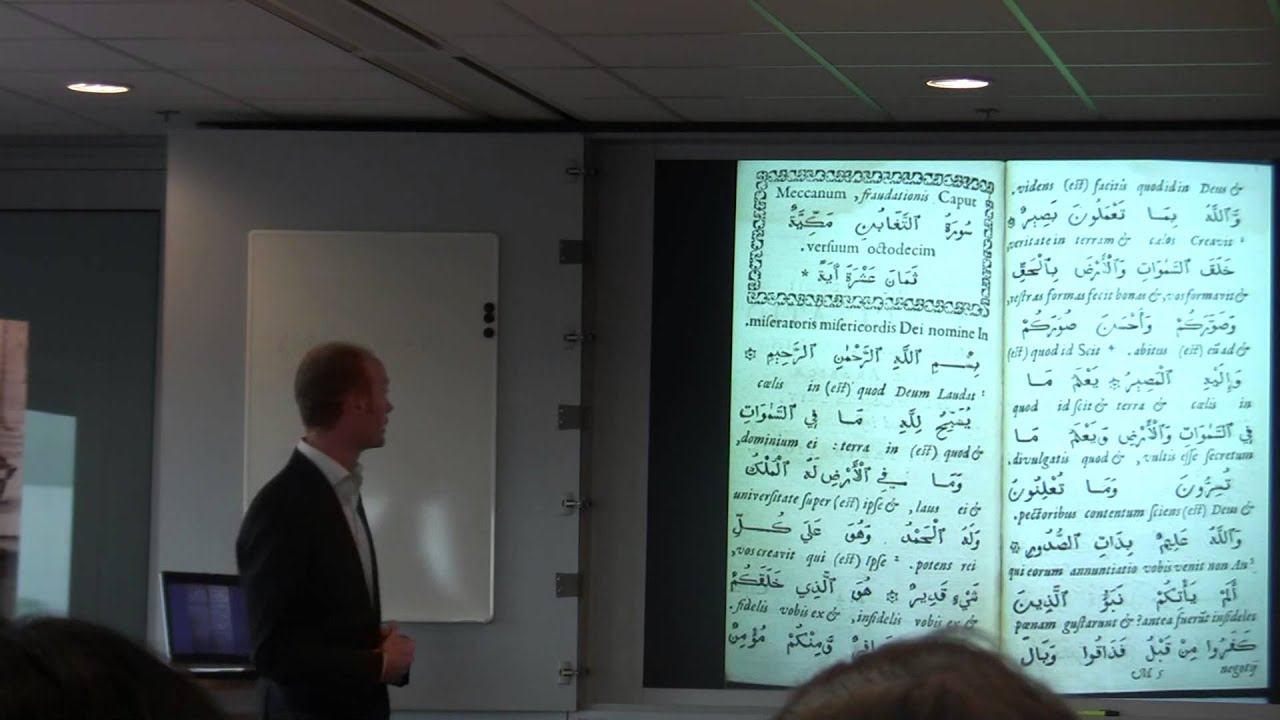 Meccanum, fraudationis Caput
سُورَةُ التَّغَابُنِ مَكِّيَّةٌ
.versuum octodecim
ثَمَانَ عَشْرَةَ آيَةً *
.miseratoris misericordis Dei nomine In
بِسْمِ اللَّهِ الرَّحْمٰنِ الرَّحِيمِ
cælis in (est) quod Deum Laudat ¹
يُسَبِّحُ لِلَّهِ مَا فِي السَّمٰوَاتِ
,dominium ei : terra in (est) quod &
وَمَا فِي الْأَرْضِ لَهُ الْمُلْكُ
universitate super (est) ipse & , laus ei &
وَلَهُ الْحَمْدُ وَهُوَ عَلَىٰ كُلِّ
,vos creavit qui (est) Ipse ² .potens rei
شَيْءٍ قَدِيرٌ هُوَ الَّذِي خَلَقَكُمْ
.fidelis vobis ex & , infidelis vobis ex &
وَّمِنْكُمْ مُؤْمِنٌ
.videns (est) facitis quod id in Deus &
وَّاللَّهُ بِمَا تَعْمَلُونَ بَصِيرٌ
veritate in terram & cælos Creavit ³
خَلَقَ السَّمٰوَاتِ وَالْأَرْضَ بِالْحَقِّ
,vestras formas fecit bonas & , vos formavit &
وَصَوَّرَكُمْ وَأَحْسَنَ صُوَرَكُمْ
(est) quod id Scit ⁴ .abitus (est) eũ ad &
وَإِلَيْهِ الْمَصِيرُ يَعْلَمُ مَا
quod id scit & terra & cælis in
فِي السَّمٰوَاتِ وَالْأَرْضِ وَيَعْلَمُ مَا
.divulgatis quod & , vultis esse secretum
تُسِرُّونَ وَمَا تُعْلِنُونَ
.pectoribus contentum sciens (est) Deus &
وَاللَّهُ عَلِيمٌ بِذَاتِ الصُّدُورِ
qui eorum annuntiatio vobis venit non An ⁵
أَلَمْ يَأْتِكُمْ نَبَؤُ الَّذِينَ
pœnam gustarunt & ? antea fuerũt infideles
كَفَرُوا مِنْ قَبْلُ فَذَاقُوا وَبَالَ
M 5 negotij